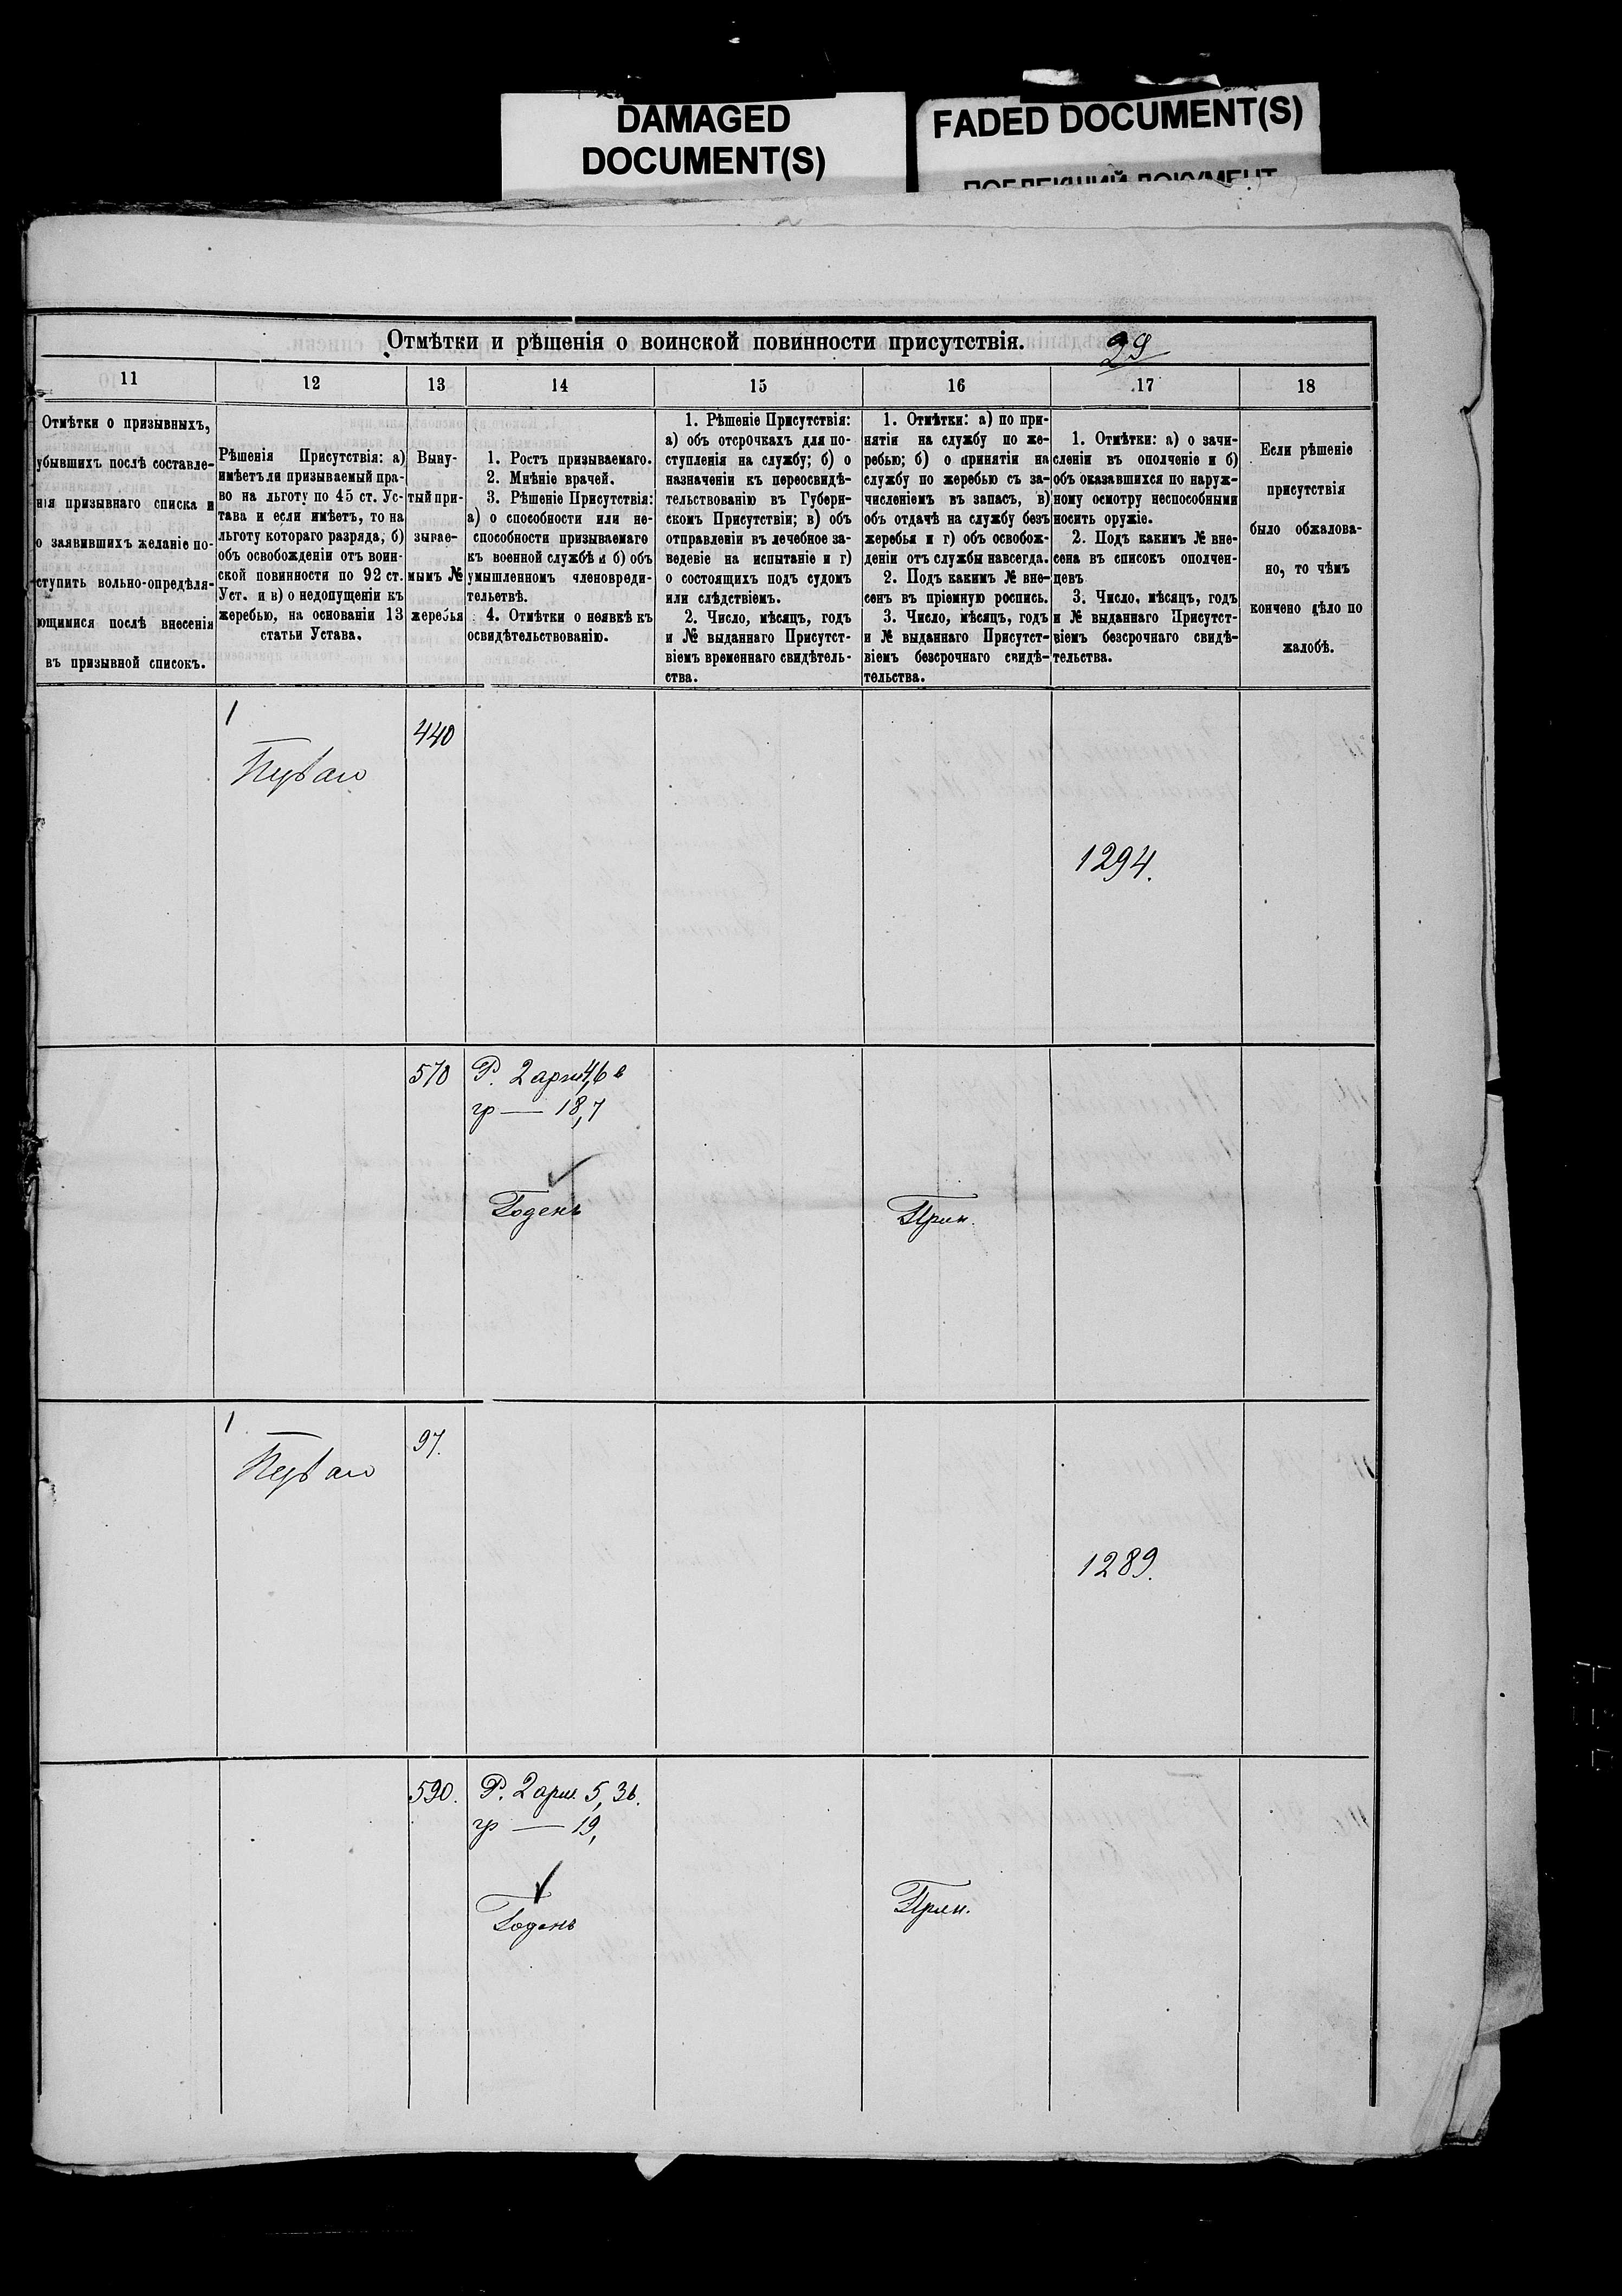 DAMAGED
DOCUMENT(S)
FADED DOCUMENT(S)
Отмѣтки и рѣшенія о воинской повинности присутствія.
29
11
12
13
14
15
16
17
18
Отмѣтки о призывныхъ,
убывшихъ послѣ составле-
нія призывнаго списка и
о заявившихъ желаніе по-
ступить вольно-опредѣля-
ющимися послѣ внесенія
въ призывной список.
Рѣшенія Присутствія: а)
имѣетъ ли призываемый пра-
во на льготу по 45 ст. Ус-
тава и если имѣетъ, то на
льготу котораго разряда, б)
объ освобожденіи отъ воин-
ской повинности по 92 ст.
Уст. и в) о недопущеніи къ
жеребью, на основаніи 13
статьи Устава.
Выну-
тый при-
зывае-
мымъ №
жеребья
1. Ростъ призываемаго.
2. Мнѣніе врачей.
3. Рѣшеніе Присутствія:
а) о способности или не-
способности призываемаго
къ военной службѣ и б) объ
умышленномъ членовреди-
тельетвѣ.
4. Отмѣтки о неявкѣ къ
освидѣтельствованію.
1. Рѣшеніе Присутствія:
а) объ отсрочкахъ для по-
ступленія на службу; б) о
назначеніи къ переосвидѣ-
тельствованію въ Губерн-
скомъ Присутствіи; в) объ
отправленіи въ лечебное за-
веденіе на испытаніе и г)
о состоящихъ подъ судомъ
или слѣдствіемъ.
2. Число, мѣсяцъ, годъ
и № выданнаго Присутст-
віемъ временнаго свидѣтель-
ства.
1. Отмѣтки: а) по при-
нятіи на службу по же-
ребью; б) о принятіи на
службу по жеребью съ за-
численіемъ въ запасъ, в)
объ отдачѣ на службу безъ
жеребья и г) объ освобож-
деніи отъ службы навсегда.
2. Подъ какимъ № вне-
сенъ въ пріемную роспись.
3. Число, мѣсяцъ, годъ
и № выданнаго Присутст-
віемъ безсрочнаго свидѣ-
тельства.
1. Отмѣтки: а) о зачи-
сленіи въ ополченіе и б)
объ оказавшихся по наруж-
ному осмотру неспособными
носить оружіе.
2. Подъ какимъ № вне-
сена въ список ополчен-
цевъ
3. Число, мѣсяцъ, годъ
и № выданнаго Присутст-
віемъ безсрочнаго свидѣ-
тельства.
Если рѣшеніе
присутствія
было обжалова-
но, то чѣмъ
кончено дѣло по
жалобѣ.
1
440
1294.
570
Р. 2 арш 4,6 в
гр — 18,7
Годенъ
Прин.
1
97.
1289.
590.
Р. 2 арш. 5,3 в.
гр — 19,
Годенъ
Прин.